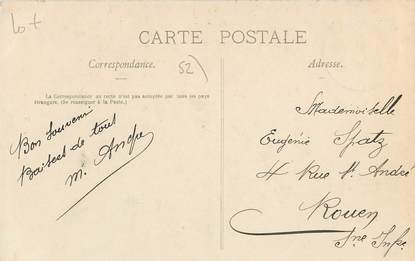 Lot
CARTE POSTALE
Correspondance.
52)
La Correspondance au recto n'est pas acceptée par tous les pays
étrangers. (Se renseigner à la Poste.)
Bon souvenir
Baisers de tous
M.
Adresse.
Mademoiselle
Eugénie Spatz
4 Rue St. André
Rouen
Sne Infre